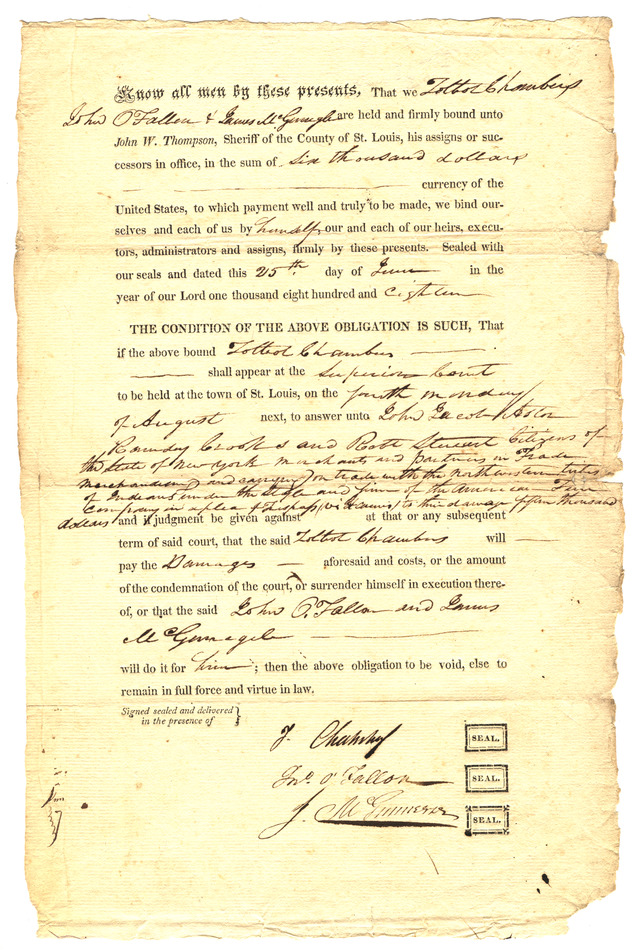 Know all men by these presents, That we Talbot Chambers
John O'Fallon & James McGunnegle are held and firmly bound unto
John W. Thompson, Sheriff of the County of St. Louis, his assigns or suc-
cessors in office, in the sum of six thousand dollars
currency of the
United States, to which payment well and truly to be made, we bind our-
selves and each of us by himself, our and each of our heirs, execu-
tors, administrators and assigns, firmly by these presents. Sealed with
our seals and dated this 25th day of June in the
year of our Lord one thousand eight hundred and eighteen
THE CONDITION OF THE ABOVE OBLIGATION IS SUCH, That
if the above bound Talbot Chambers
shall appear at the Superior Court
to be held at the town of St. Louis, on the fourth monday
of August next, to answer unto John Jacob Astor
Ramsay Crooks and Robt Stewart Citizens of
the State of New York merchants and partners in Trade
merchandize and carrying on trade with the northwestern tribes
of Indians under the style and firm of the American Fur
Company in a plea of Trespass vi et armis to their damage fifteen thousand
dollars and if judgment be given against at that or any subsequent
term of said court, that the said Talbot Chambers will
pay the Damages aforesaid and costs, or the amount
of the condemnation of the court, or surrender himself in execution there-
of, or that the said John O'Fallon and James
McGunnegle
will do it for him; then the above obligation to be void, else to
remain in full force and virtue in law.
Signed sealed and delivered
in the presence of
T. Chambers SEAL.
Jno. O'Fallon SEAL.
J. McGunnegle SEAL.